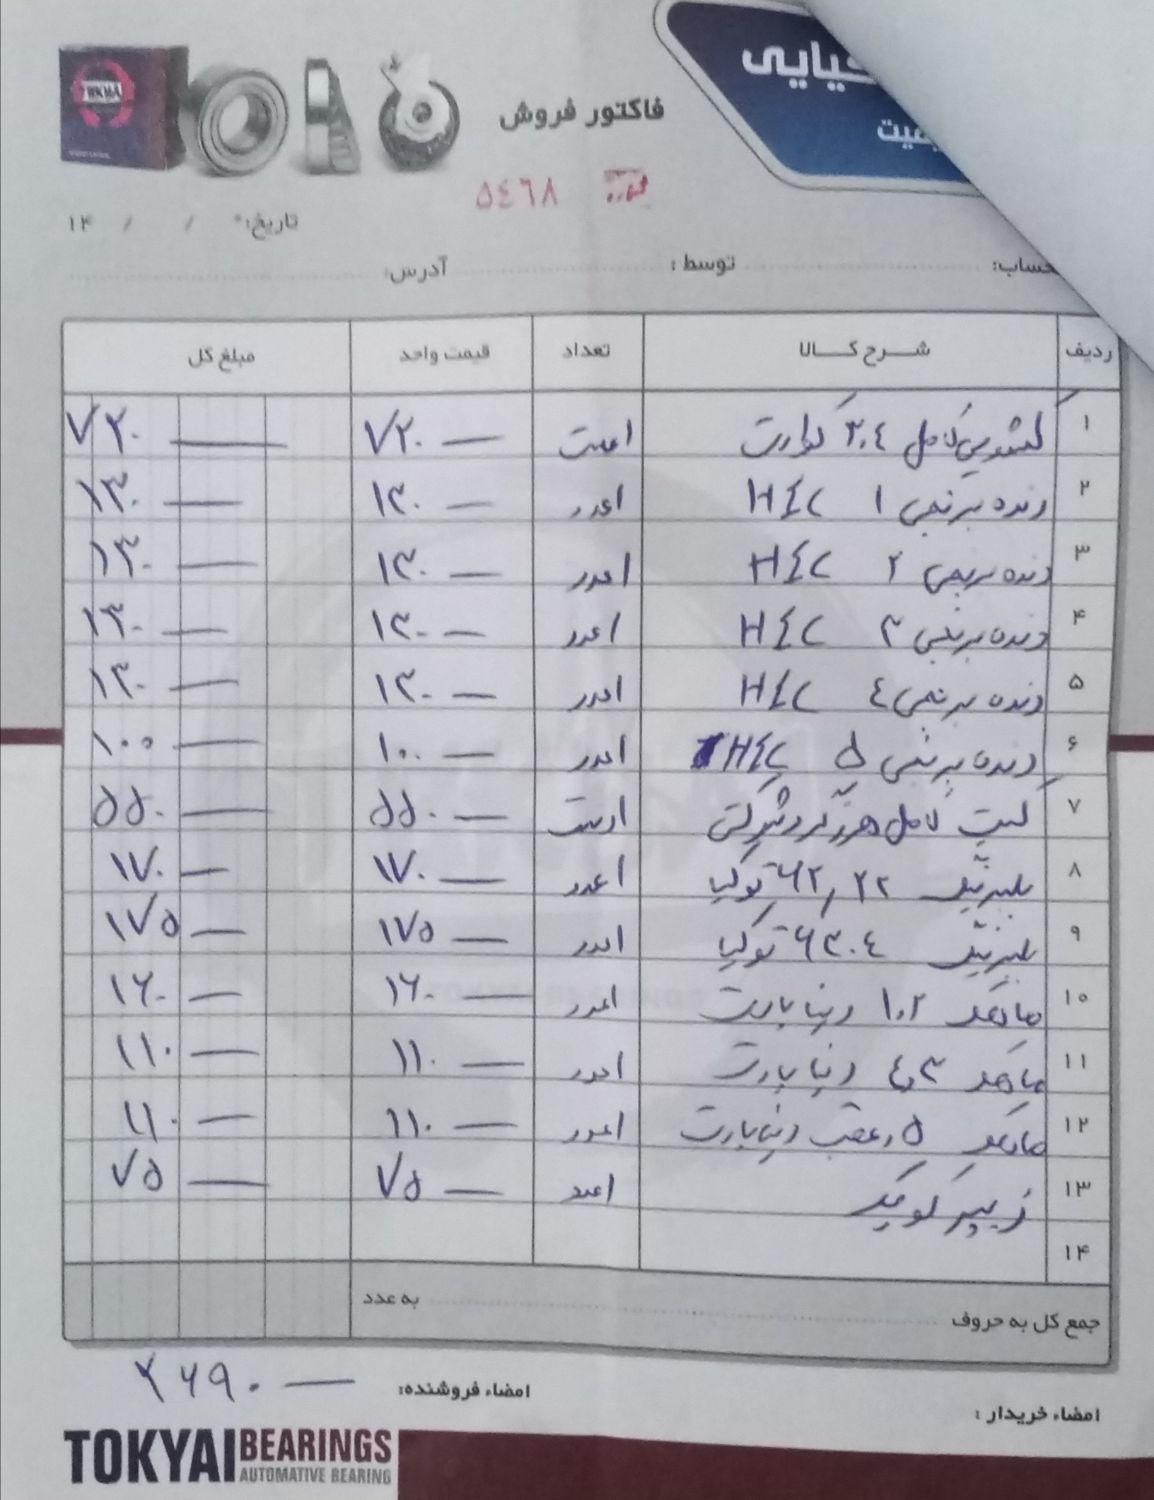 کیایی
کیفیت
TOKYA
فاکتور فروش
شماره ٥٤٦٨
تاریخ: / / ۱۴
حساب: توسط: آدرس:
ردیف شرح کالا تعداد قیمت واحد مبلغ کل
۱ کشویی کامل ۳،٤ کوارت ۱ست ۷۲۰ — ۷۲۰ —
۲ دنده برنجی ۱ HIC ۱عدد ۱۳۰ — ۱۳۰ —
۳ دنده برنجی ۲ HIC ۱عدد ۱۳۰ — ۱۳۰ —
۴ دنده برنجی ۳ HIC ۱عدد ۱۳۰ — ۱۳۰ —
۵ دنده برنجی ٤ HIC ۱عدد ۱۳۰ — ۱۳۰ —
۶ دنده برنجی ۵ HIC ۱عدد ۱۰۰ — ۱۰۰ —
۷ کیت کامل هرزگرد شرکتی ۱ست ۵۵۰ — ۵۵۰ —
۸ بلبرینگ ۶۲/۲۲ توکیا ۱عدد ۱۷۰ — ۱۷۰ —
۹ بلبرینگ ۶۳۰٤ توکیا ۱عدد ۱۷۵ — ۱۷۵ —
۱۰ ماهک ۱،۲ دنیا پارت ۱عدد ۱۶۰ — ۱۶۰ —
۱۱ ماهک ۳،٤ دنیا پارت ۱عدد ۱۱۰ — ۱۱۰ —
۱۲ ماهک ۵،عقب دنیا پارت ۱عدد ۱۱۰ — ۱۱۰ —
۱۳ ۱عدد ۷۵ — ۷۵ —
۱۴
جمع کل به حروف به عدد
امضاء خریدار: امضاء فروشنده: ۲۶۹۰ —
TOKYAI BEARINGS
AUTOMATIVE BEARING